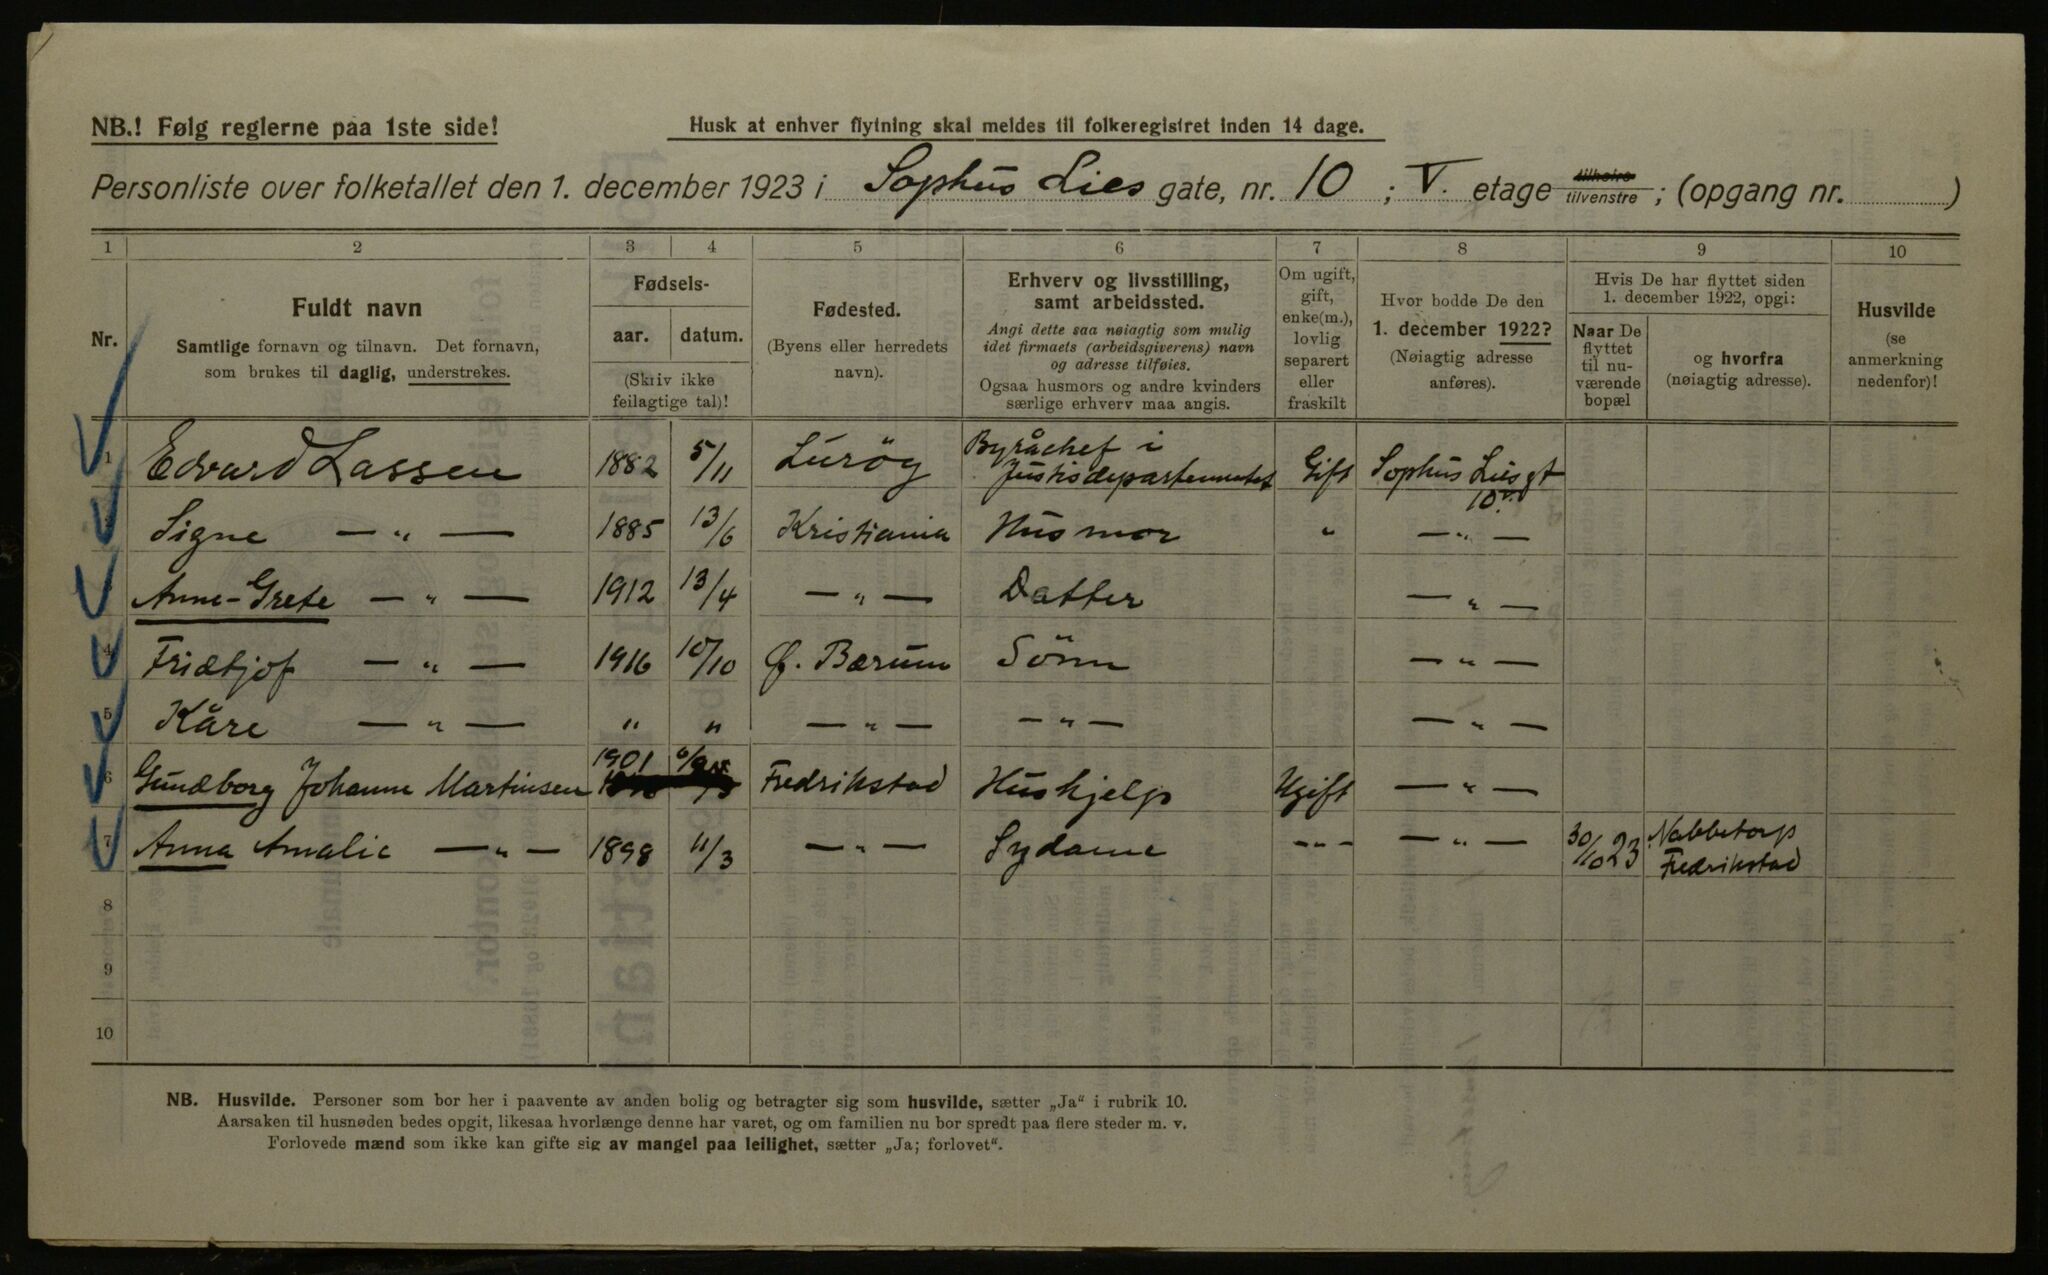 NB.! Følg reglerne paa 1ste side!
Husk at enhver flytning skal meldes til folkeregistret inden 14 dage.
Personliste over folketallet den 1. december 1923 i Sophus Lies gate, nr. 10 ; V. etage tilhøire tilvenstre ; (opgang nr. )
1 2 3 4 5 6 7 8 9 10
Nr.
Fuldt navn
Samtlige fornavn og tilnavn. Det fornavn,
som brukes til daglig, understrekes.
Fødsels-
aar. datum.
(Skriv ikke
feilagtige tal)!
Fødested.
(Byens eller herredets
navn).
Erhverv og livsstilling,
samt arbeidssted.
Angi dette saa nøiagtig som mulig
idet firmaets (arbeidsgiverens) navn
og adresse tilføies.
Ogsaa husmors og andre kvinders
særlige erhverv maa angis.
Om ugift,
gift,
enke(m.),
lovlig
separert
eller
fraskilt
Hvor bodde De den
1. december 1922?
(Nøiagtig adresse
anføres).
Hvis De har flyttet siden
1. december 1922, opgi:
Naar De
flyttet
til nu-
værende
bopæl
og hvorfra
(nøiagtig adresse).
Husvilde
(se
anmerkning
nedenfor)!
1 Edvard Lassen 1882 5/11 Lurøy Byråchef i Justisdepartementet Gift Sophus Lies gt 10 V.
Signe — „ — 1885 13/6 Kristiania Husmor „ — „ —
Anne-Grete — „ — 1912 13/4 — „ — Datter — „ —
4 Fridtjof — „ — 1916 10/10 Ø. Bærum Sönn — „ —
5 Kåre — „ — „ „ — „ — — „ — — „ —
6 Gundborg Johanne Martinsen 1901 Fredrikstad Hushjelp Ugift — „ —
7 Anna Amalie — „ — 1898 11/3 — „ — Sydame - „ - — „ — 30/10 23 Nabbetorp Fredrikstad
8
9
10
NB. Husvilde. Personer som bor her i paavente av anden bolig og betragter sig som husvilde, sætter „Ja“ i rubrik 10.
Aarsaken til husnøden bedes opgit, likesaa hvorlænge denne har varet, og om familien nu bor spredt paa flere steder m. v.
Forlovede mænd som ikke kan gifte sig av mangel paa leilighet, sætter „Ja; forlovet“.